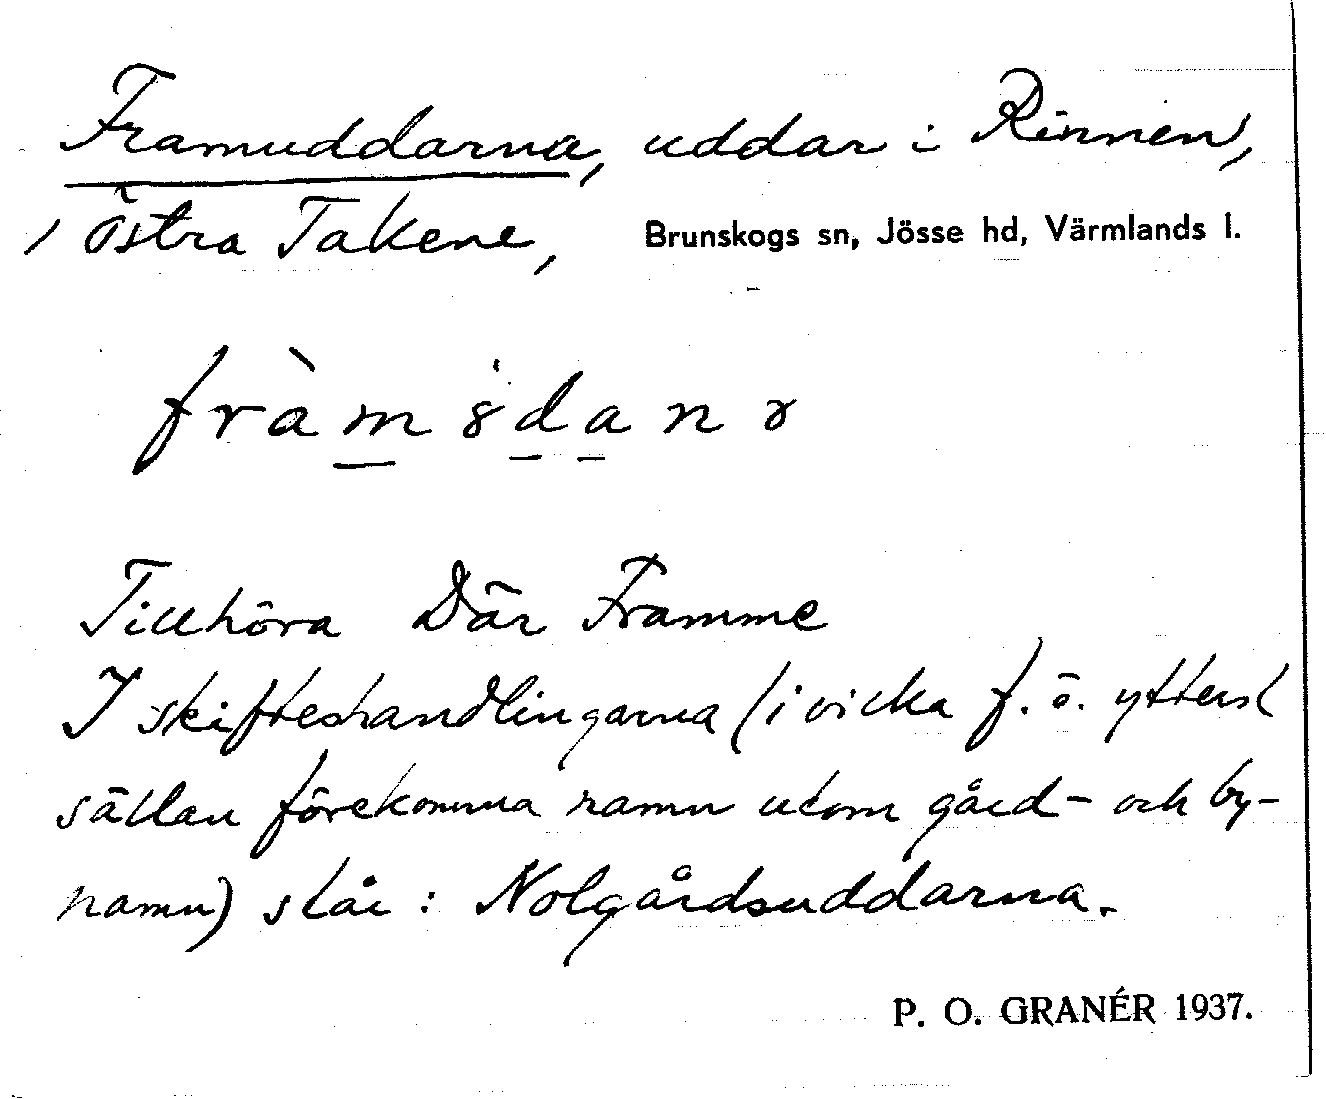 Framuddarna, uddar i Rinnen,
Östra Takene, Brunskogs sn, Jösse hd, Värmlands l.
Tillhöra Där Framme
I skifteshandlingarna (i vilka f. ö. ytterst
sällan förekomma namn utom gård- och by-
namn) står: Nolgårdsuddarna.
P. O. GRANÉR 1937.